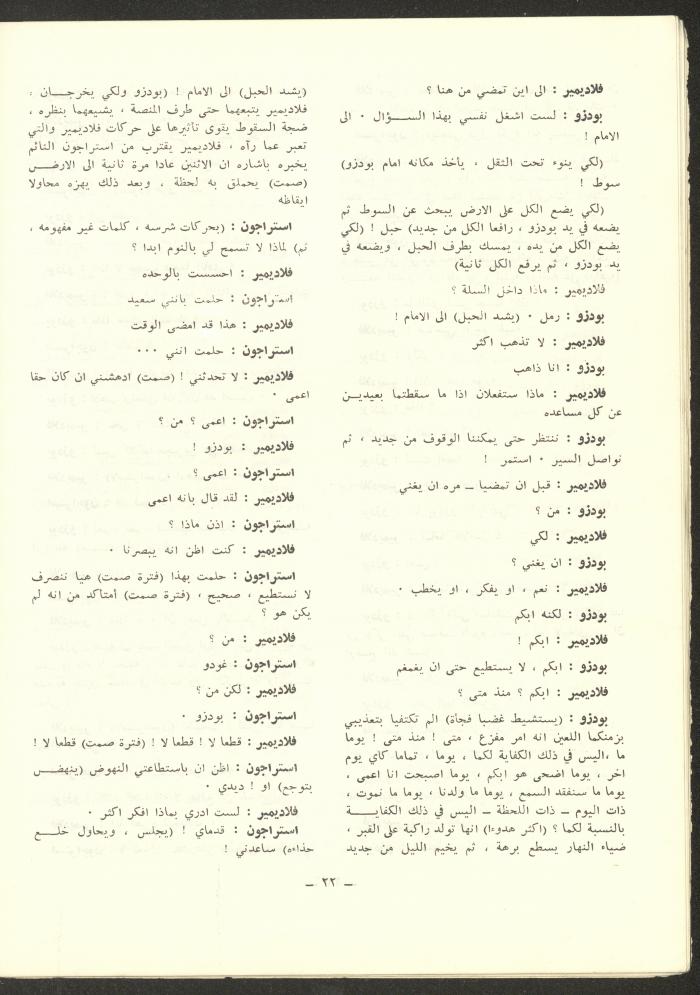 فلاديمير : الى اين تمضي من هنا ؟
بودزو : لست اشغل نفسي بهذا الســـؤال ٠ الى
الامام !
(لكي ينوء تحت الثقل ، يأخذ مكانه امام بودزو)
سوط !
(لكي يضع الكل على الارض يبحث عن السوط ثم
يضعه في يد بودزو ، رافعا الكل من جديد) حبل ! (لكي
يضع الكل من يده ، يمسك بطرف الحبل ، ويضعه في
يد بودزو ، ثم يرفع الكل ثانية)
فلاديمير : ماذا داخل السلة ؟
بودزو : رمل ٠ (يشد الحبل) الى الامام !
فلاديمير : لا تذهب اكثر
بودزو : انا ذاهب
فلاديمير : ماذا ستفعلان اذا ما سقطتما بعيديـــن
عن كل مساعده
بودزو : ننتظر حتى يمكننا الوقوف من جديد ، ثم
نواصل السير ٠ استمر !
فلاديمير : قبل ان تمضيا ــ مره ان يغني
بودزو : من ؟
فلاديمير : لكي
بودزو : ان يغني ؟
فلاديمير : نعم ، او يفكر ، او يخطب ٠
بودزو : لكنه ابكم
فلاديمير : ابكم !
بودزو : ابكم ، لا يستطيع حتى ان يغمغم
فلاديمير : ابكم ؟ منذ متى ؟
بودزو : (يستشيط غضبا فجأة) الم تكتفيا بتعذيبي
بزمنكما اللعين انه امر مفزع ، متى ! منذ متى ! يوما
ما ،اليس في ذلك الكفاية لكما ، يوما ، تماما كاي يوم
اخر ، يوما اضحى هو ابكم ، يوما اصبحت انا اعمى ،
يوما ما سنفقد السمع ، يوما ما ولدنا ، يوما ما نموت ،
ذات اليوم ــ ذات اللحظة ــ اليس في ذلك الكفايـــة
بالنسبة لكما ؟ (اكثر هدوءا) انها تولد راكبة على القبر ،
ضياء النهار يسطع برهة ، ثم يخيم الليل من جديد
(يشد الحبل) الى الامام ! (بودزو ولكي يخرجـــان ،
فلاديمير يتبعهما حتى طرف المنصة ، يشيعهما بنظره ،
ضجة السقوط يقوى تاثيرها على حركات فلاديمير والتي
تعبر عما رآه ، فلاديمير يقترب من استراجون النائم
يخبره باشاره ان الاثنين عادا مرة ثانية الى الارض
(صمت) يحملق به لحظة ، وبعد ذلك يهزه محاولا
ايقاظه
استراجون : (بحركات شرسه ، كلمات غير مفهومه ،
ثم) لماذا لا تسمح لي بالنوم ابدا ؟
فلاديمير : احسست بالوحده
استراجون : حلمت بانني سعيد
فلاديمير : هذا قد امضى الوقت
استراجون : حلمت انني ٠٠٠
فلاديمير : لا تحدثني ! (صمت) ادهشني ان كان حقا
اعمى ٠
استراجون : اعمى ؟ من ؟
فلاديمير : بودزو !
استراجون : اعمى ؟
فلاديمير : لقد قال بانه اعمى
استراجون : اذن ماذا ؟
فلاديمير : كنت اظن انه يبصرنا ٠
استراجون : حلمت بهذا (فترة صمت) هيا ننصرف
لا نستطيع ، صحيح ، (فترة صمت) أمتاكد من انه لم
يكن هو ؟
فلاديمير : من ؟
استراجون : غودو
فلاديمير : لكن من ؟
استراجون : بودزو ٠
فلاديمير : قطعا لا ! قطعا لا ! (فترة صمت) قطعا لا !
استراجون : اظن ان باستطاعتي النهوض (ينهض
بتوجع) او ! ديدي ٠
فلاديمير : لست ادري بماذا افكر اكثر ٠
استراجون : قدماي ! (يجلس ، ويحاول خلـــع
حذاءه) ساعدني !
ــ ٢٢ ــ